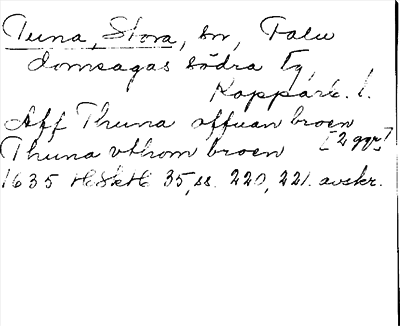 Tuna, Stora, sn, Falu
domsagas södra tg,
Kopparb. l.
Aff Thuna offuan broen
Thuna vthom broen [2 ggr]
1635 HSkH 35, ss. 220, 221. avskr.